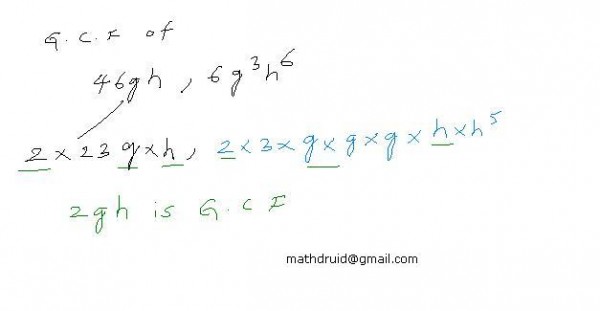 G.C.F of
46gh, 6g³h⁶
2 × 23 g × h, 2 × 3 × g × g × g × h × h⁵
2gh is G.C F
mathdruid@gmail.com